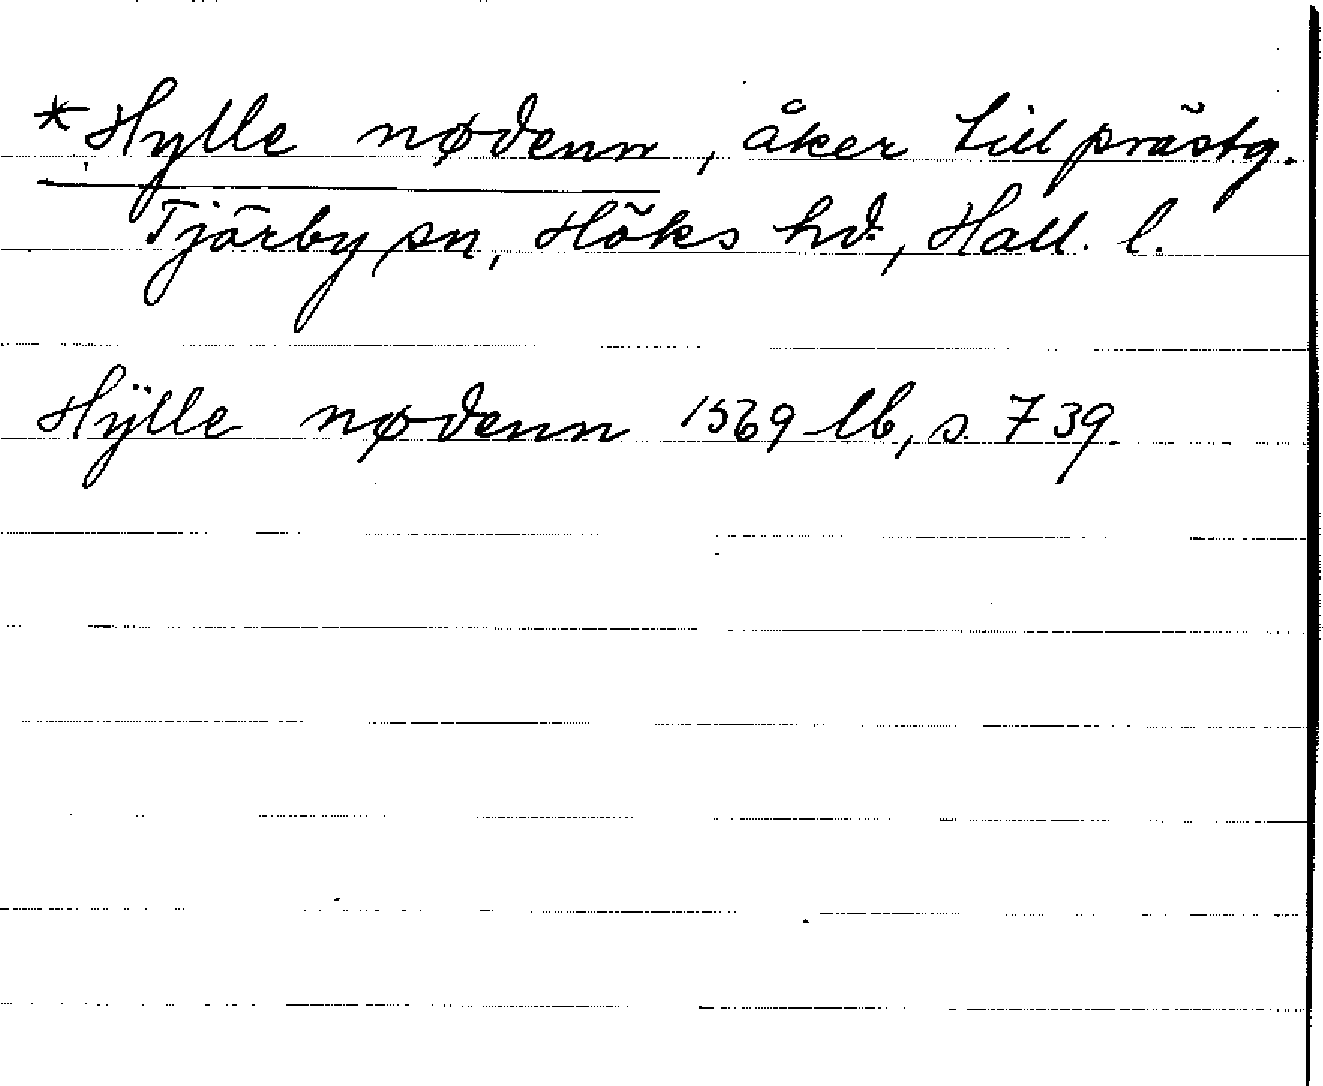 *Hylle nødenn, åker till prästg.
Tjärby sn, Höks hd, Hall. l.
Hÿlle nødenn 1569 lb, s. 739.